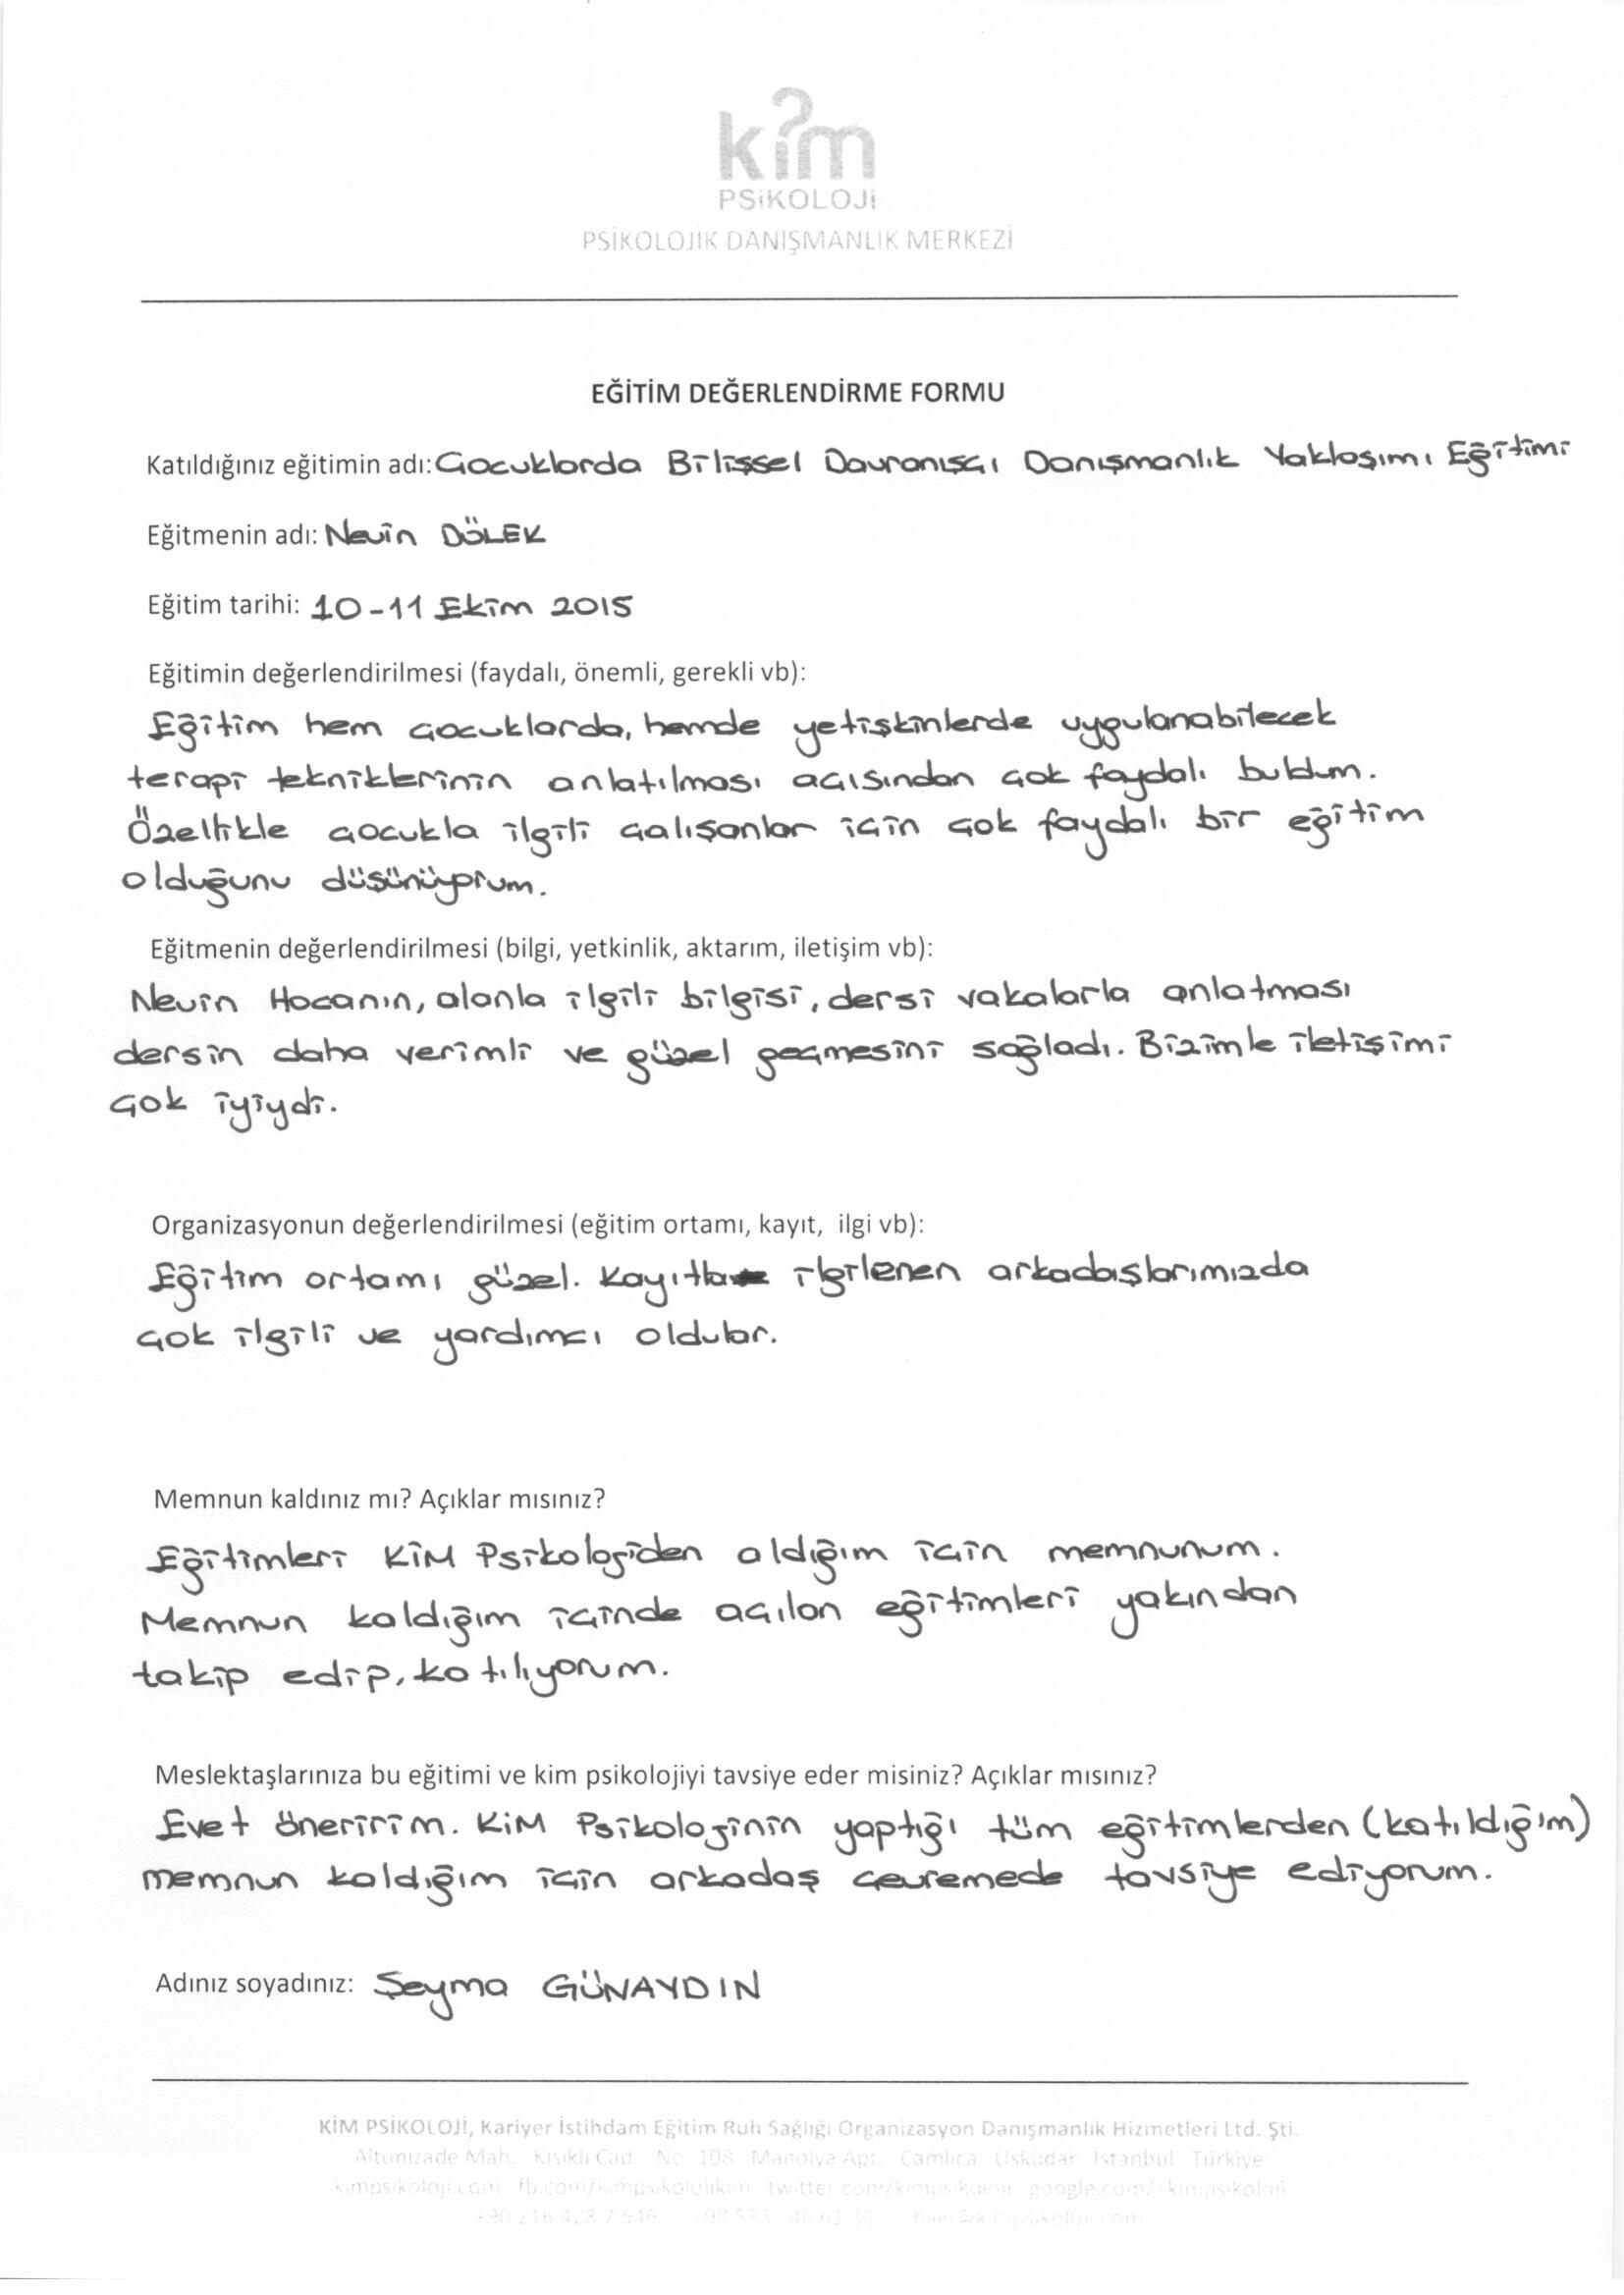 kim
PSiKOLOJi
PSİKOLOJİK DANIŞMANLIK MERKEZİ
EĞİTİM DEĞERLENDİRME FORMU
Katıldığınız eğitimin adı: Çocuklarda Bilişsel Davranışçı Danışmanlık Yaklaşımı Eğitimi
Eğitmenin adı: Nevin DÖLEK
Eğitim tarihi: 10-11 Ekim 2015
Eğitimin değerlendirilmesi (faydalı, önemli, gerekli vb):
Eğitim hem çocuklarda, hemde yetişkinlerde uygulanabilecek
terapi tekniklerinin anlatılması açısından çok faydalı buldum.
Özellikle çocukla ilgili çalışanlar için çok faydalı bir eğitim
olduğunu düşünüyorum.
Eğitmenin değerlendirilmesi (bilgi, yetkinlik, aktarım, iletişim vb):
Nevin Hocanın, alanla ilgili bilgisi, dersi vakalarla anlatması
dersin daha verimli ve güzel geçmesini sağladı. Bizimle iletişimi
çok iyiydi.
Organizasyonun değerlendirilmesi (eğitim ortamı, kayıt, ilgi vb):
Eğitim ortamı güzel. Kayıtla ilgilenen arkadaşlarımızda
çok ilgili ve yardımcı oldular.
Memnun kaldınız mı? Açıklar mısınız?
Eğitimleri KİM Psikolojiden aldığım için memnunum.
Memnun kaldığım içinde açılan eğitimleri yakından
takip edip, katılıyorum.
Meslektaşlarınıza bu eğitimi ve kim psikolojiyi tavsiye eder misiniz? Açıklar mısınız?
Evet öneririm. KİM Psikolojinin yaptığı tüm eğitimlerden (katıldığım)
memnun kaldığım için arkadaş çevremede tavsiye ediyorum.
Adınız soyadınız: Şeyma GÜNAYDIN
KİM PSİKOLOJİ, Kariyer İstihdam Eğitim Ruh Sağlığı Organizasyon Danışmanlık Hizmetleri Ltd. Şti.
Altunizade Mah. Kısıklı Cad. No 108 Manolya Apt. Çamlıca Üsküdar İstanbul Türkiye
kimpsikoloji.com fb.com/kimpsikolojikim twitter.com/kimpsikoloji google.com/+kimpsikoloji